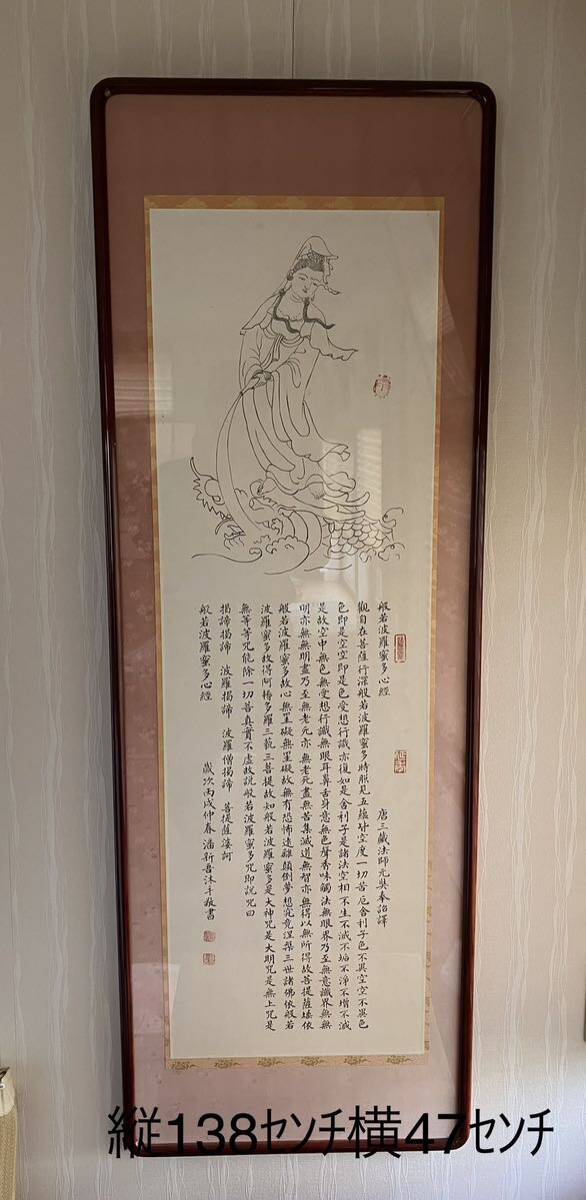 般若波羅蜜多心經 唐三藏法師元奘奉詔譯
觀自在菩薩行深般若波羅蜜多時照見五蘊皆空度一切苦厄舍利子色不異空空不異色
色即是空空即是色受想行識亦復如是舍利子是諸法空相不生不滅不垢不淨不增不減
是故空中無色無受想行識無眼耳鼻舌身意無色聲香味觸法無眼界乃至無意識界無無
明亦無無明盡乃至無老死亦無老死盡無苦集滅道無智亦無得以無所得故菩提薩埵依
般若波羅蜜多故心無罣礙無罣礙故無有恐怖遠離顛倒夢想究竟涅槃三世諸佛依般若
波羅蜜多故得阿耨多羅三藐三菩提故知般若波羅蜜多是大神咒是大明咒是無上咒是
無等等咒能除一切苦真實不虛故說般若波羅蜜多咒即說咒曰
揭諦揭諦 波羅揭諦 波羅僧揭諦 菩提薩婆訶
般若波羅蜜多心經 歲次丙戌仲春潘新吾沐手敬書
縦138ｾﾝﾁ横47ｾﾝﾁ